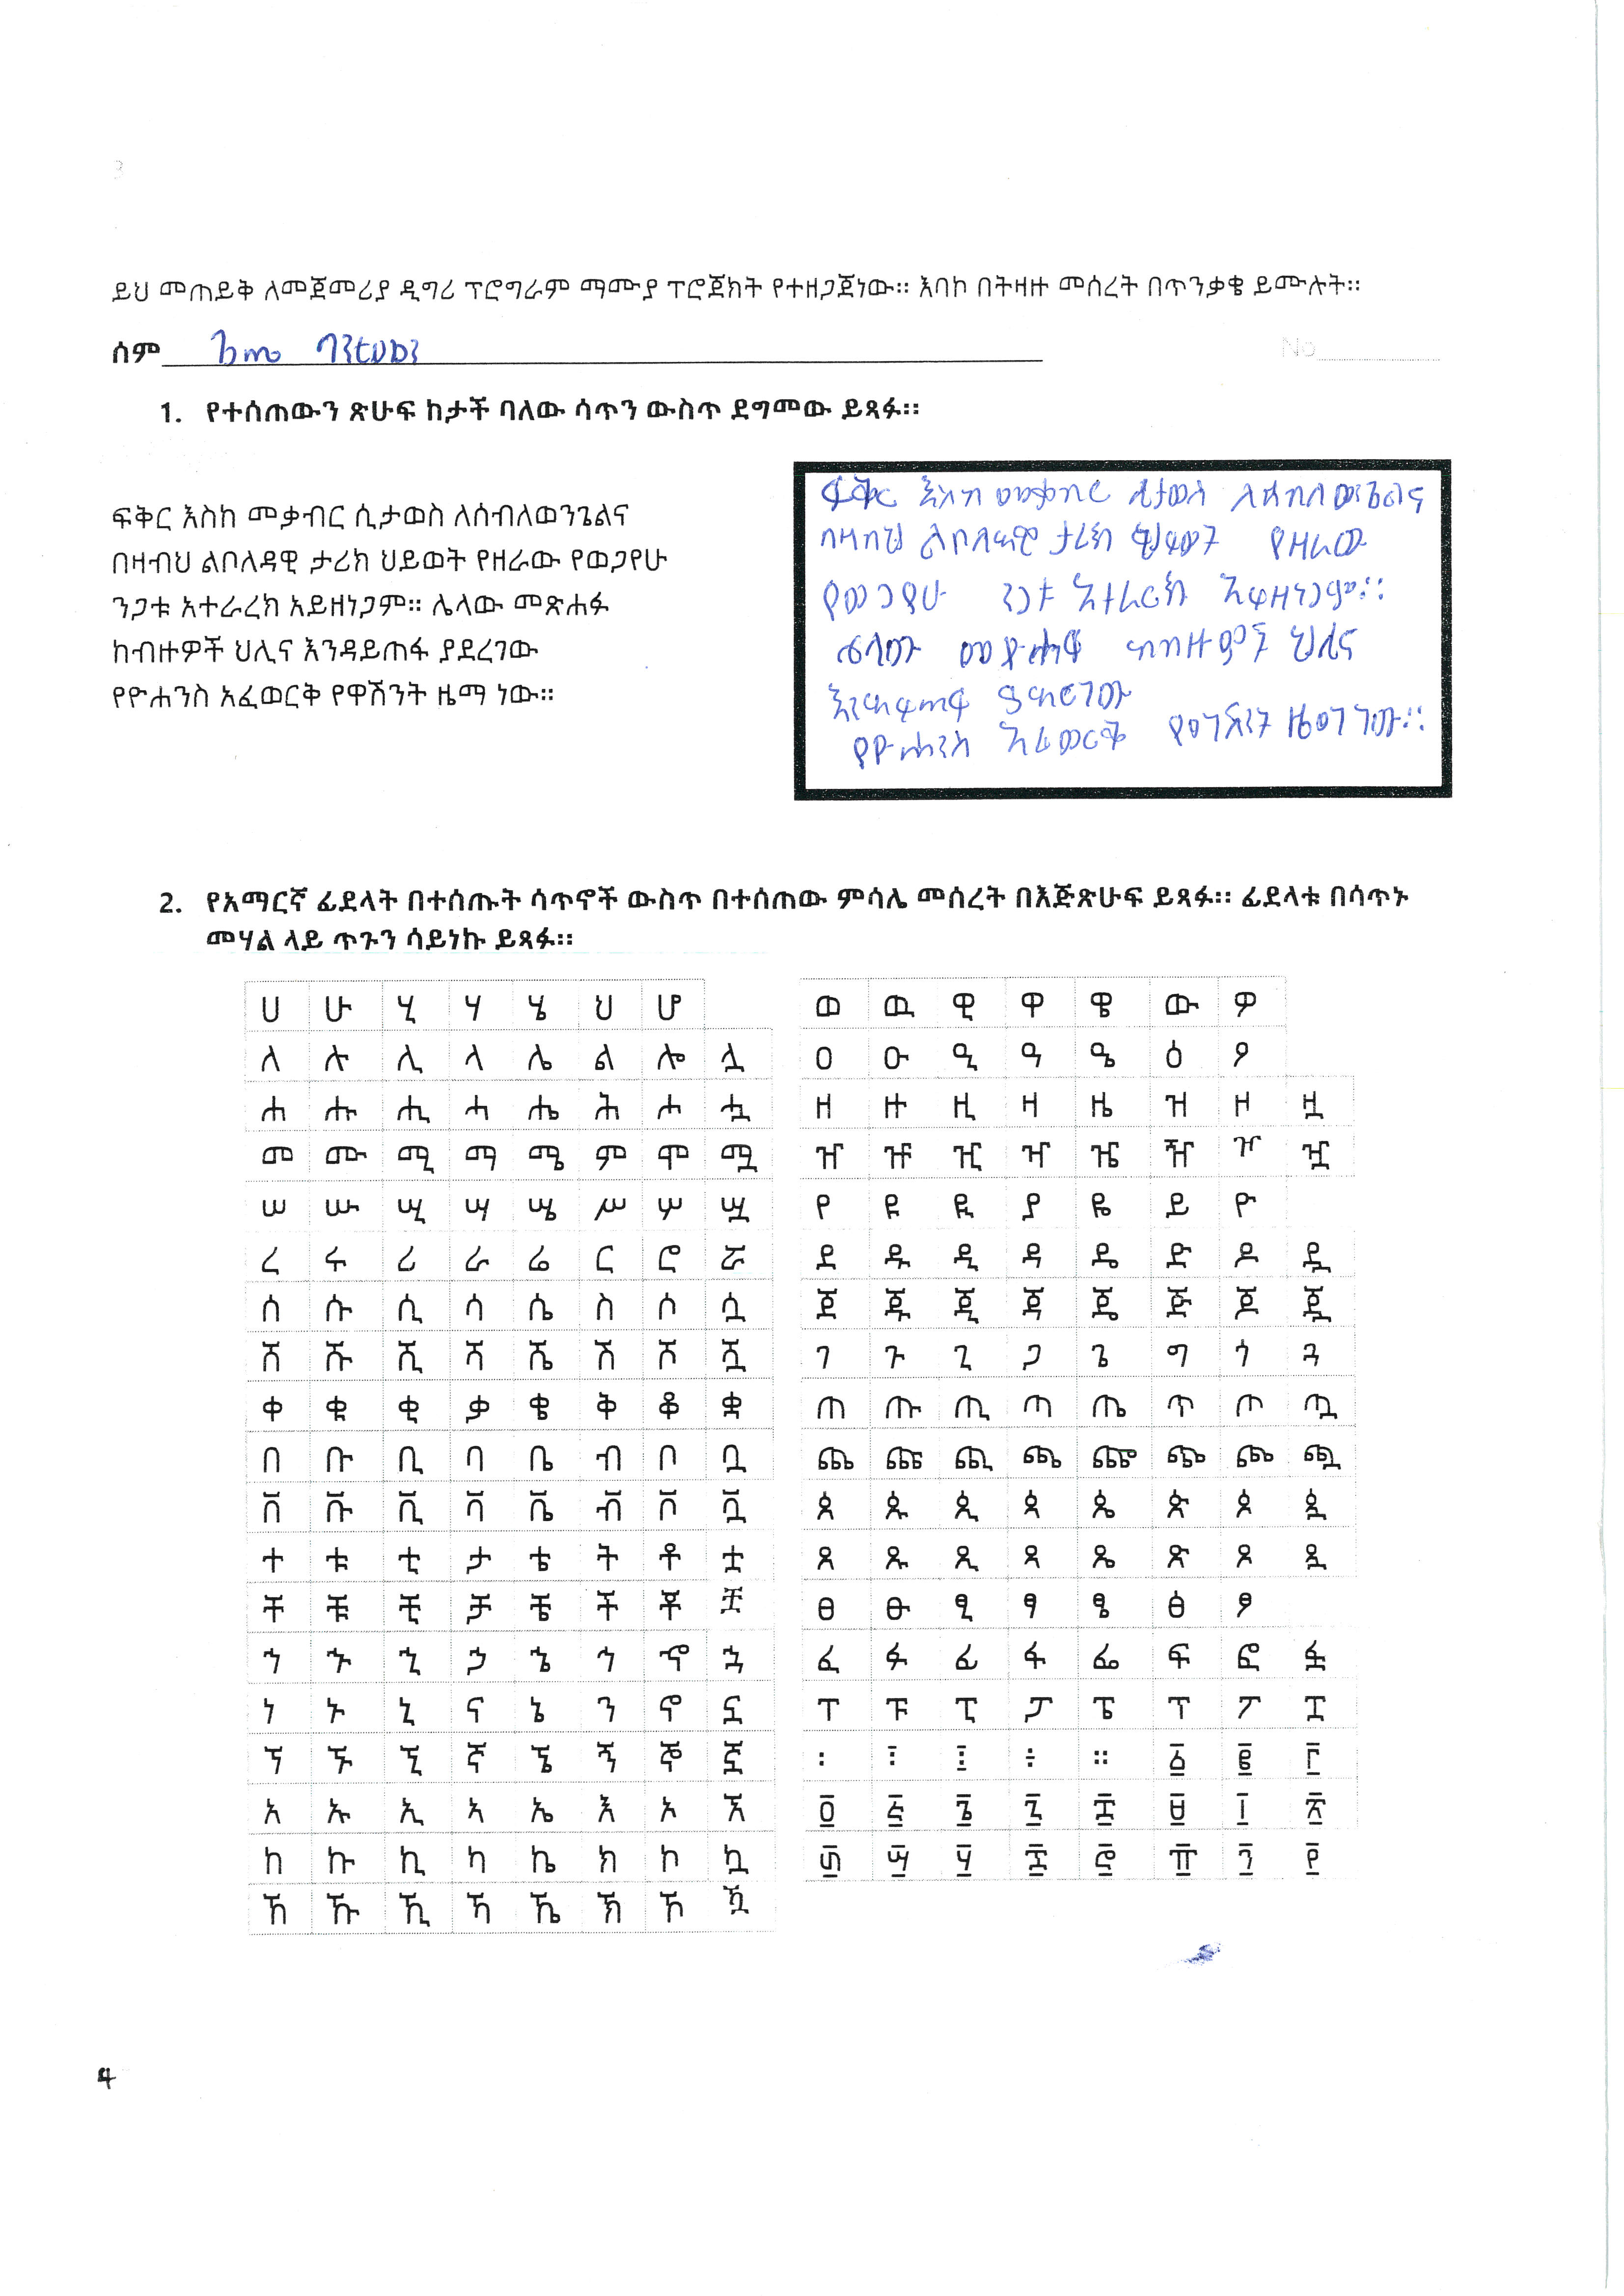 ይህ መጠይቅ ለመጀመሪያ ዲግሪ ፕሮግራም ማሙያ ፕሮጀክት የተዘጋጀነው። እባኮ በትዛዙ መሰረት በጥንቃቄ ይሙሉት።
ስም
No
1. የተሰጠውን ጽሁፍ ከታች ባለው ሳጥን ውስጥ ደግመው ይጻፉ።
ፍቅር እስከ መቃብር ሲታወስ ለሰብለወንጌልና
በዛብህ ልቦለዳዊ ታሪክ ህይወት የዘራው የወጋየሁ
ንጋቱ አተራረክ አይዘነጋም። ሌላው መጽሐፉ
ከብዙዎች ህሊና እንዳይጠፋ ያደረገው
የዮሐንስ አፈወርቅ የዋሽንት ዜማ ነው።
ፍቅር እስከ መቃብር ሲታወስ ለሰብለወንጌልና
በዛብህ ልቦለዳዊ ታሪክ ህይወት የዘራው
የወጋየሁ ንጋቱ አተራርክ አይዘነጋም።
ሌላው መጽሐፉ ከብዙዎች ህሊና
እንዳይጠፋ ያደረገው
የዮሐንስ አፈወርቅ የዋሽንት ዜማ ነው።
2. የአማርኛ ፊደላት በተሰጡት ሳጥኖች ውስጥ በተሰጠው ምሳሌ መሰረት በእጅጽሁፍ ይጻፉ። ፊደላቱ በሳጥኑ
መሃል ላይ ጥጉን ሳይነኩ ይጻፉ።
ሀ ሁ ሂ ሃ ሄ ህ ሆ
ለ ሉ ሊ ላ ሌ ል ሎ ሏ
ሐ ሑ ሒ ሓ ሔ ሕ ሖ ሗ
መ ሙ ሚ ማ ሜ ም ሞ ሟ
ሠ ሡ ሢ ሣ ሤ ሥ ሦ ሧ
ረ ሩ ሪ ራ ሬ ር ሮ ሯ
ሰ ሱ ሲ ሳ ሴ ስ ሶ ሷ
ሸ ሹ ሺ ሻ ሼ ሽ ሾ ሿ
ቀ ቁ ቂ ቃ ቄ ቅ ቆ ቋ
በ ቡ ቢ ባ ቤ ብ ቦ ቧ
ቨ ቩ ቪ ቫ ቬ ቭ ቮ ቯ
ተ ቱ ቲ ታ ቴ ት ቶ ቷ
ቸ ቹ ቺ ቻ ቼ ች ቾ ቿ
ኀ ኁ ኂ ኃ ኄ ኅ ኆ ኋ
ነ ኑ ኒ ና ኔ ን ኖ ኗ
ኘ ኙ ኚ ኛ ኜ ኝ ኞ ኟ
አ ኡ ኢ ኣ ኤ እ ኦ ኧ
ከ ኩ ኪ ካ ኬ ክ ኮ ኳ
ኸ ኹ ኺ ኻ ኼ ኽ ኾ ዃ
ወ ዉ ዊ ዋ ዌ ው ዎ
ዐ ዑ ዒ ዓ ዔ ዕ ዖ
ዘ ዙ ዚ ዛ ዜ ዝ ዞ ዟ
ዠ ዡ ዢ ዣ ዤ ዥ ዦ ዧ
የ ዩ ዪ ያ ዬ ይ ዮ
ደ ዱ ዲ ዳ ዴ ድ ዶ ዷ
ጀ ጁ ጂ ጃ ጄ ጅ ጆ ጇ
ገ ጉ ጊ ጋ ጌ ግ ጎ ጓ
ጠ ጡ ጢ ጣ ጤ ጥ ጦ ጧ
ጨ ጩ ጪ ጫ ጬ ጭ ጮ ጯ
ጰ ጱ ጲ ጳ ጴ ጵ ጶ ጷ
ጸ ጹ ጺ ጻ ጼ ጽ ጾ ጿ
ፀ ፁ ፂ ፃ ፄ ፅ ፆ
ፈ ፉ ፊ ፋ ፌ ፍ ፎ ፏ
ፐ ፑ ፒ ፓ ፔ ፕ ፖ ፗ
፡ ፤ ፥ ፦ ። ፩ ፪ ፫
፬ ፭ ፮ ፯ ፰ ፱ ፲ ፳
፴ ፵ ፶ ፷ ፸ ፹ ፺ ፻
4